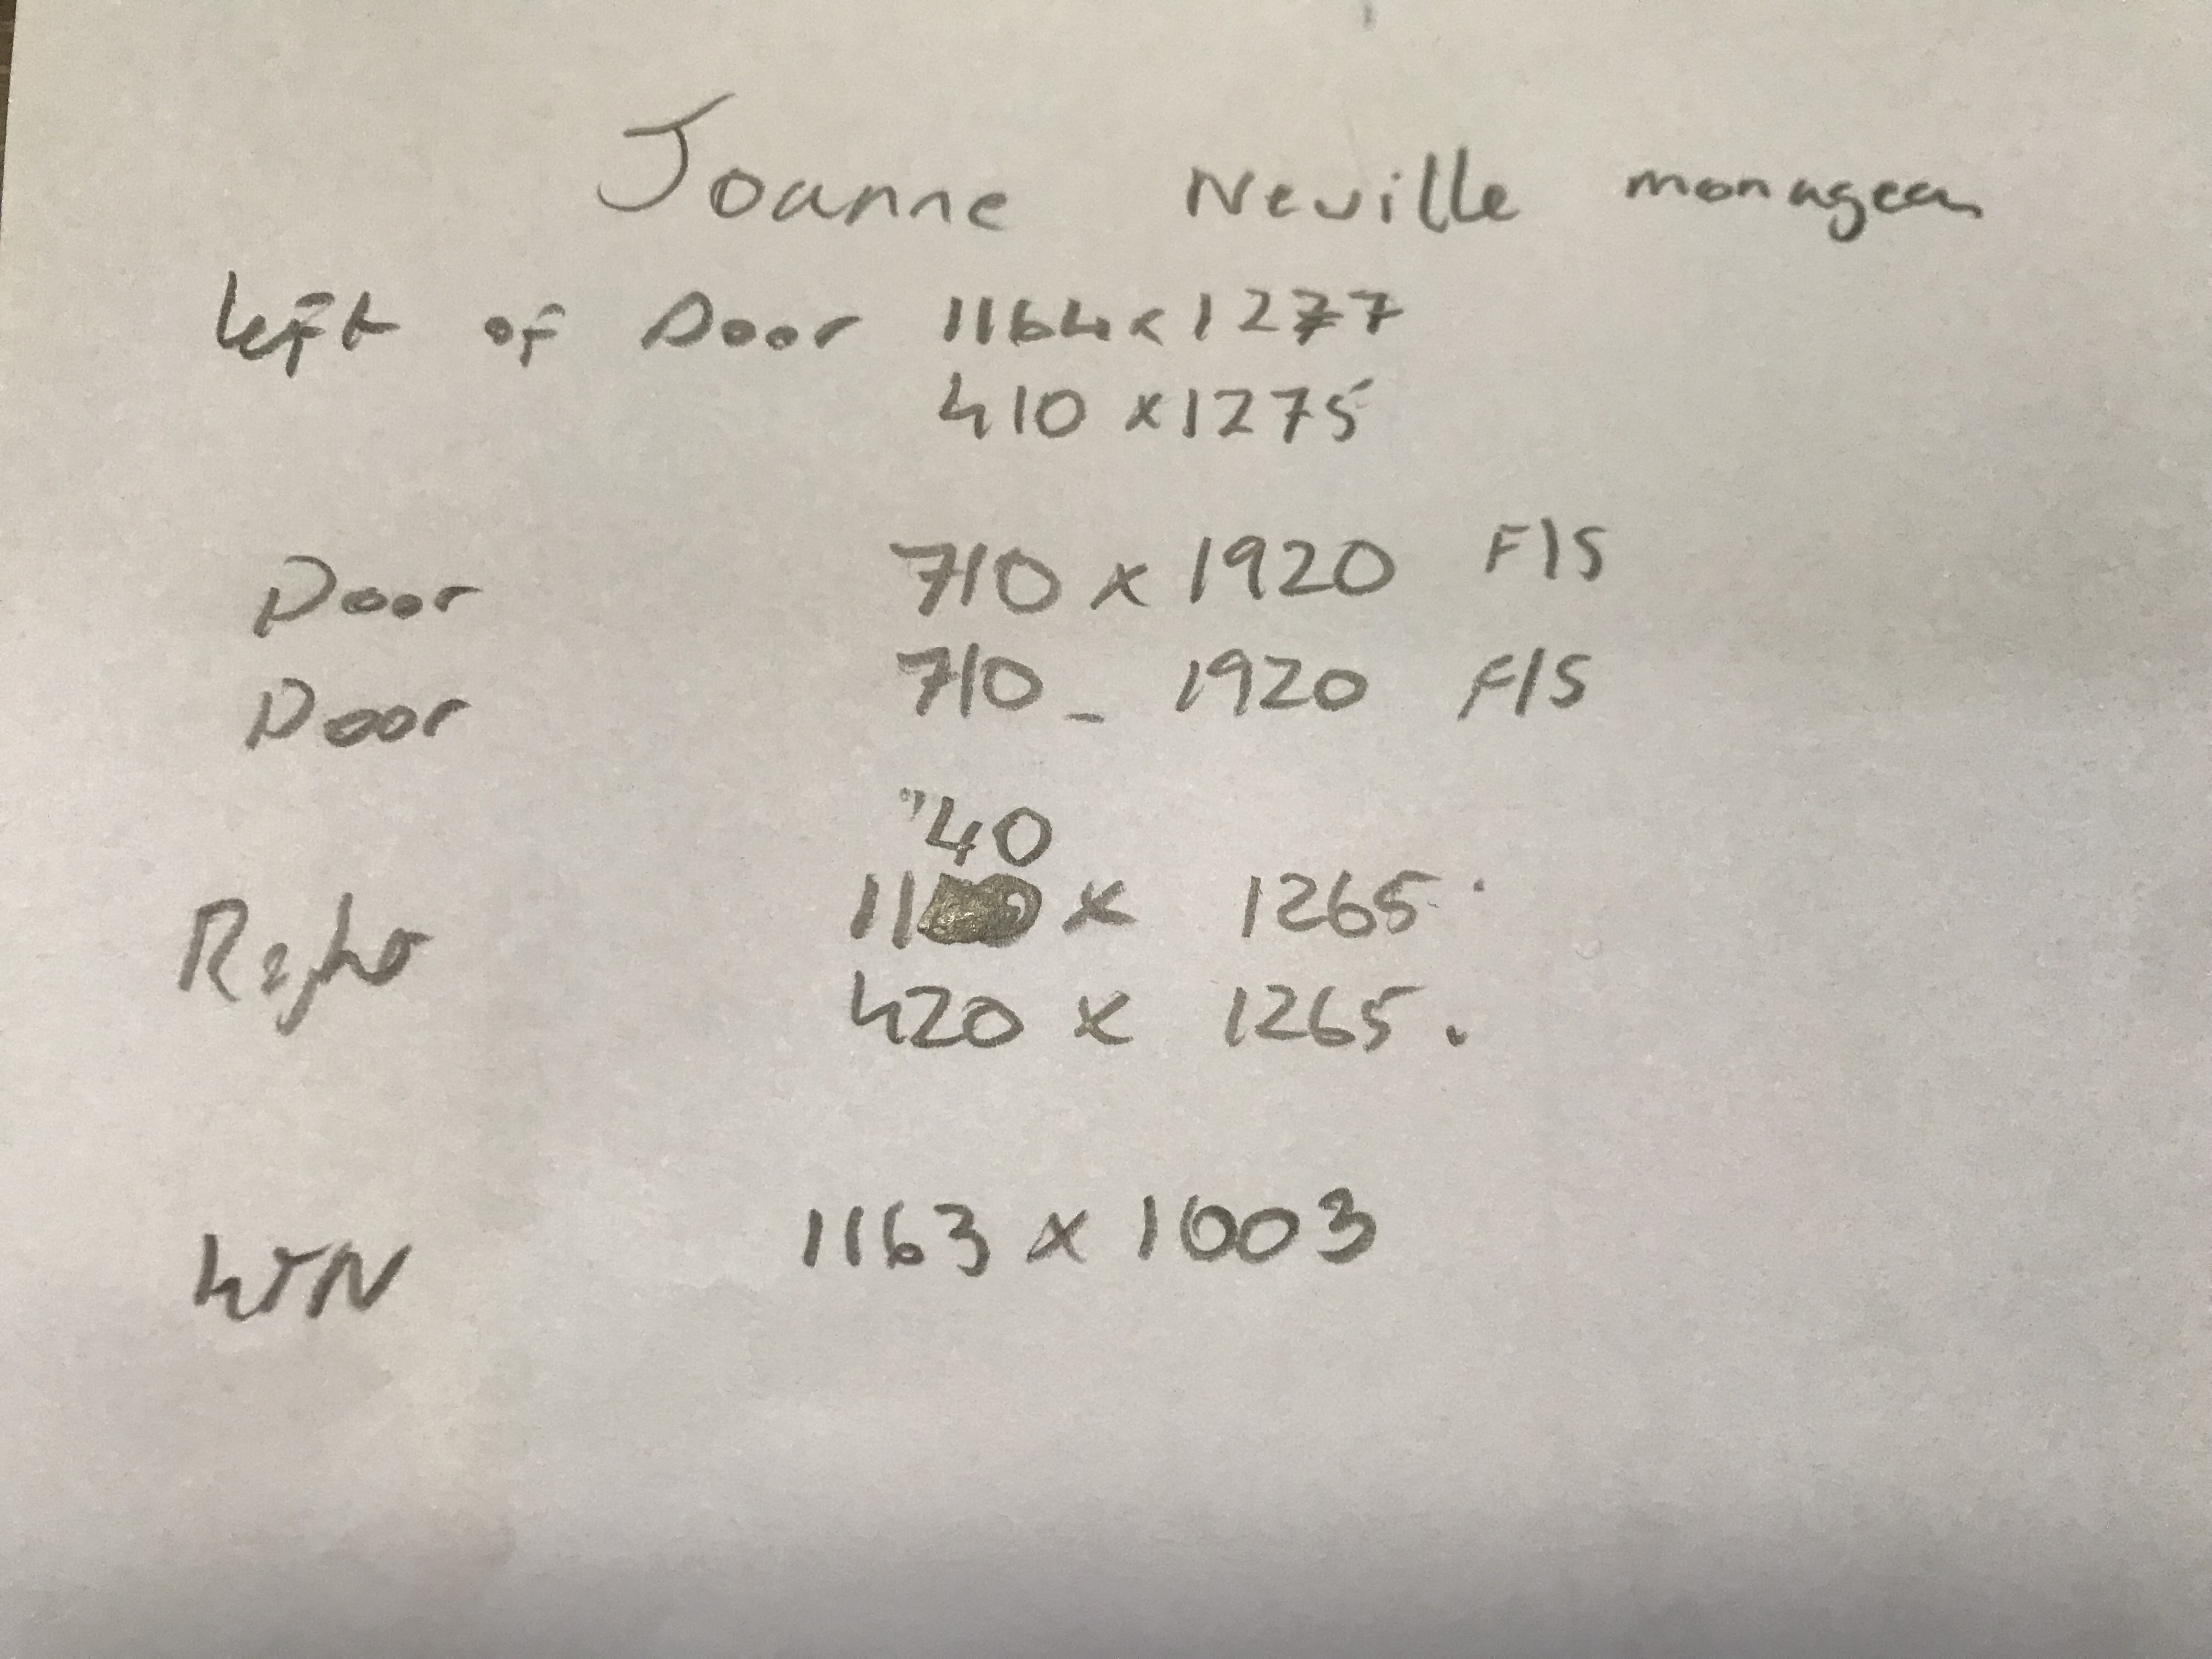 Joanne Neville monageen
Left of Door 1164 x 1277
410 x 1275
Door 710 x 1920 F/S
Door 710 - 1920 F/S
"40
Right 11 x 1265
420 x 1265.
WIN 1163 x 1003